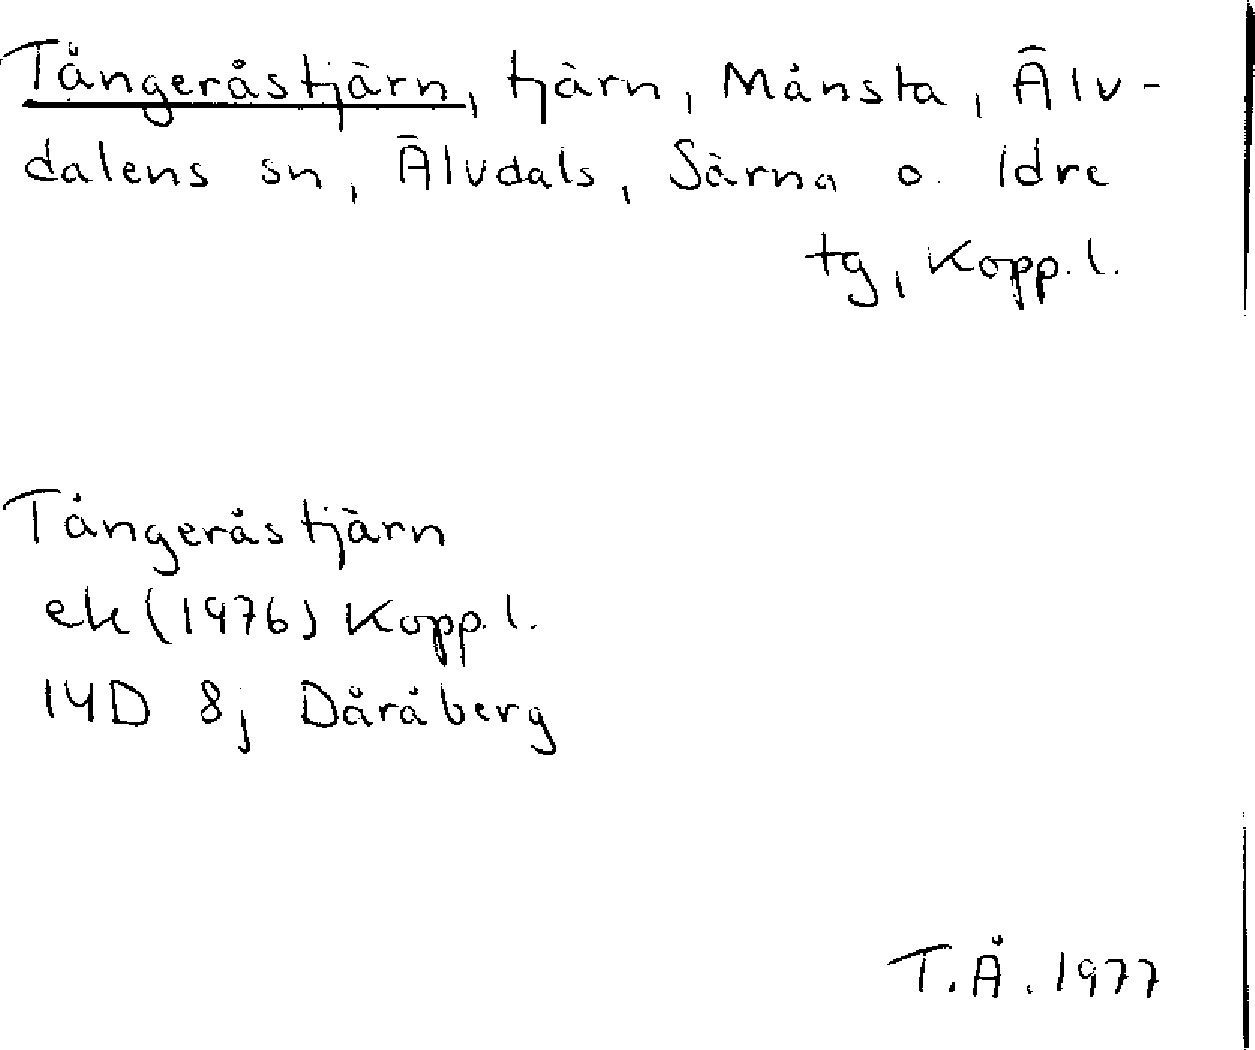 Tångeråstjärn, tjärn, Månsta, Älv-
dalens sn, Älvdals, Särna o. Idre
tg, Kopp. l.
Tångeråstjärn
ek (1976) Kopp. l.
14D 8j Dåråberg
T.Å. 1977